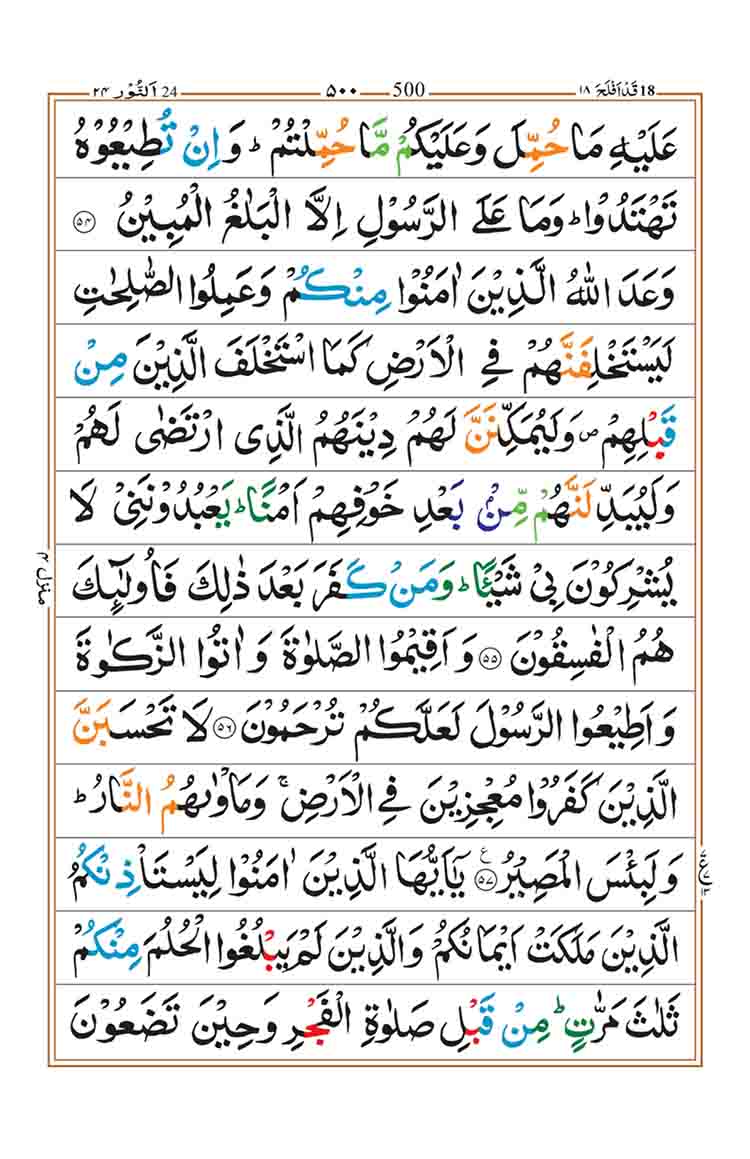 18 قَدْ اَفْلَحَ ۱۸ 500 ۵۰۰ 24 اَلنُّوْر ۲۴
عَلَيْهِ مَا حُمِّلَ وَعَلَيْكُمْ مَّا حُمِّلْتُمْ ؕ وَ اِنْ تُطِيْعُوْهُ
تَهْتَدُوْا ؕ وَمَا عَلَى الرَّسُوْلِ اِلَّا الْبَلٰغُ الْمُبِيْنُ ۵۴
وَعَدَ اللّٰهُ الَّذِيْنَ اٰمَنُوْا مِنْكُمْ وَعَمِلُوا الصّٰلِحٰتِ
لَيَسْتَخْلِفَنَّهُمْ فِي الْاَرْضِ كَمَا اسْتَخْلَفَ الَّذِيْنَ مِنْ
قَبْلِهِمْ ص وَلَيُمَكِّنَنَّ لَهُمْ دِيْنَهُمُ الَّذِى ارْتَضٰى لَهُمْ
وَلَيُبَدِّلَنَّهُمْ مِّنْۢ بَعْدِ خَوْفِهِمْ اَمْنًا ؕ يَعْبُدُوْنَنِيْ لَا
يُشْرِكُوْنَ بِيْ شَيْـًٔا ؕ وَمَنْ كَفَرَ بَعْدَ ذٰلِكَ فَاُولٰٓئِكَ
هُمُ الْفٰسِقُوْنَ ۵۵ وَ اَقِيْمُوا الصَّلٰوةَ وَ اٰتُوا الزَّكٰوةَ
وَ اَطِيْعُوا الرَّسُوْلَ لَعَلَّكُمْ تُرْحَمُوْنَ ۵۶ لَا تَحْسَبَنَّ
الَّذِيْنَ كَفَرُوْا مُعْجِزِيْنَ فِي الْاَرْضِ ۚ وَمَاْوٰىهُمُ النَّارُ ؕ
وَ لَبِئْسَ الْمَصِيْرُ ۵۷ ع يٰۤاَيُّهَا الَّذِيْنَ اٰمَنُوْا لِيَسْتَاْذِنْكُمُ
الَّذِيْنَ مَلَكَتْ اَيْمَانُكُمْ وَالَّذِيْنَ لَمْ يَبْلُغُوا الْحُلُمَ مِنْكُمْ
ثَلٰثَ مَرّٰتٍ ؕ مِنْ قَبْلِ صَلٰوةِ الْفَجْرِ وَحِيْنَ تَضَعُوْنَ
منزل ۴